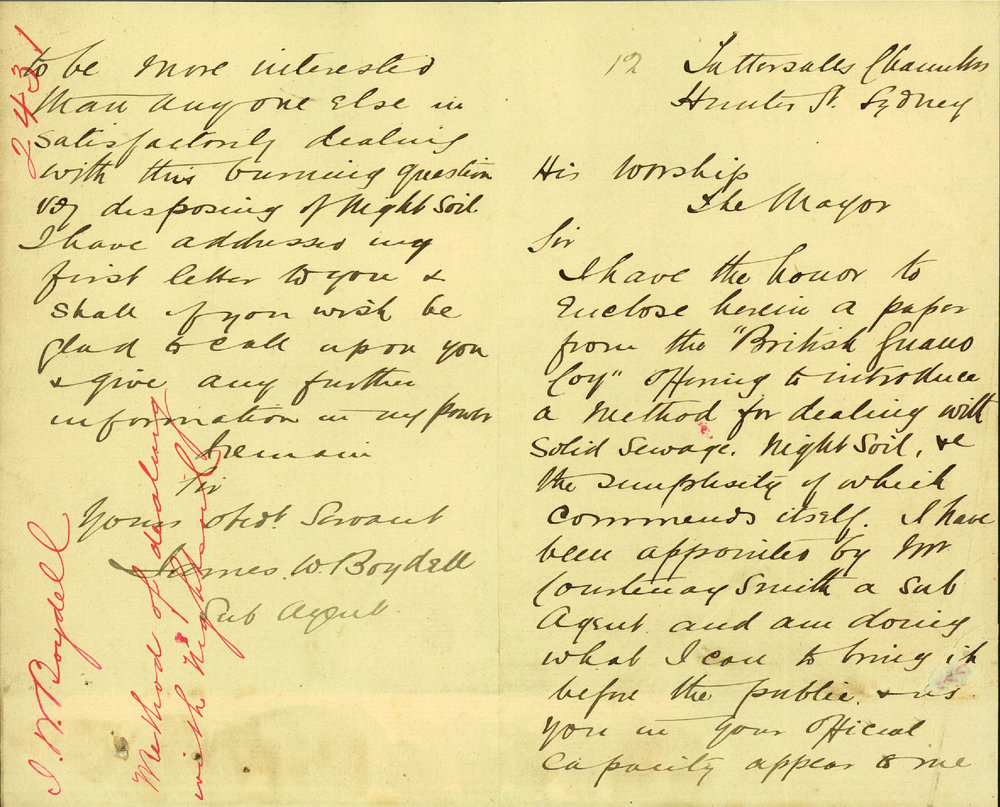 12
Tattersalls Chambers
Hunter St. Sydney
His Worship
The Mayor
Sir
I have the honor to
Enclose herein a paper
from the "British Guano
Coy" offering to introduce
a Method for dealing with
Solid Sewage. Night Soil, &c
the simplesity of which
commends itself. I have
been appointed by Mr
Courtenay Smith a Sub
Agent and am doing
what I can to bring it
before the public. & as
you in your official
capacity appear to me
to be more interested
than anyone Else in
satisfactorily dealing
with this burning question
viz disposing of Night Soil.
I have addressed my
first letter to you &
shall if you wish be
glad to call upon you
& give any further
information in my power
I remain
Sir
Yours obdt Servant
James. W. Boydell
Sub Agent.
2431
J. W. Boydell
Method of dealing
with Nightsoil